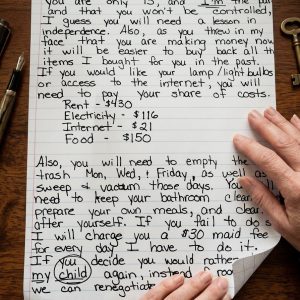 you are only 13, and I'm the pa
and that you won't be controlled,
I guess you will need a lesson in
independence. Also, as you threw in my
face that you are making money now
it will be easier to buy back all the
items I bought for you in the past.
If you would like your lamp/lightbulbs
or access to the internet, you will
need to pay your share of costs.
Rent - $430
Electricity - $116
Internet - $21
Food - $150
Also, you will need to empty the
trash Mon, Wed, & Friday, as well as
sweep & vacuum those days. You
need to keep your bathroom clean,
prepare your own meals, and clean
after yourself. If you fail to do s
I will charge you a $30 maid fee
for every day I have to do it.
If you decide you would rathe
my child again, instead roo
we can renegotiate